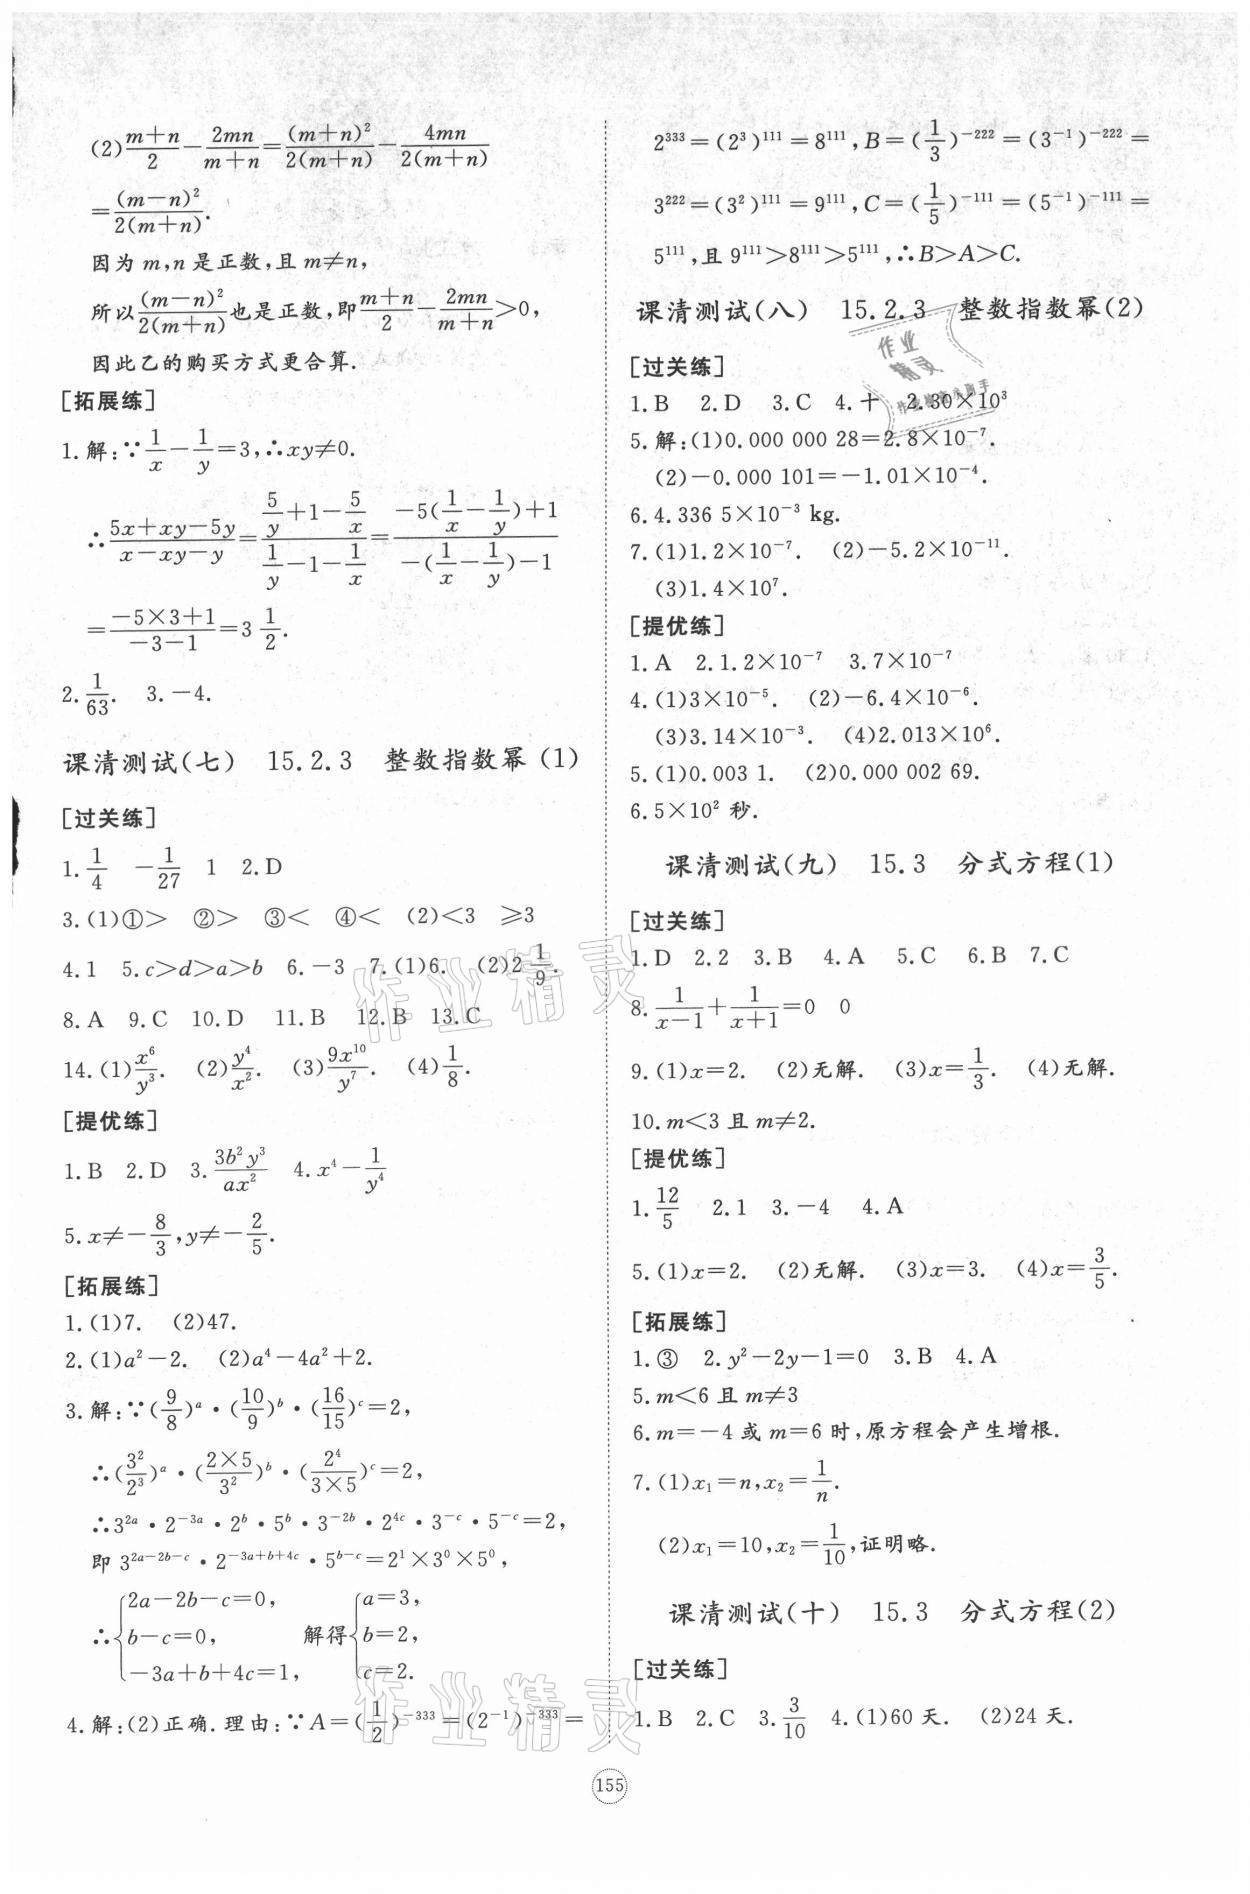 (2)\frac{m+n}{2}-\frac{2mn}{m+n}=\frac{(m+n)^2}{2(m+n)}-\frac{4mn}{2(m+n)}
=\frac{(m-n)^2}{2(m+n)}.
因为 m,n 是正数,且 m≠n,
所以\frac{(m-n)^2}{2(m+n)}也是正数,即\frac{m+n}{2}-\frac{2mn}{m+n}>0,
因此乙的购买方式更合算.
[拓展练]
1.解:∵\frac{1}{x}-\frac{1}{y}=3,∴xy≠0.
∴\frac{5x+xy-5y}{x-xy-y}=\frac{\frac{5}{y}+1-\frac{5}{x}}{\frac{1}{y}-1-\frac{1}{x}}=\frac{-5(\frac{1}{x}-\frac{1}{y})+1}{-(\frac{1}{x}-\frac{1}{y})-1}
=\frac{-5×3+1}{-3-1}=3\frac{1}{2}.
2.\frac{1}{63}. 3.-4.
课清测试(七) 15.2.3 整数指数幂(1)
[过关练]
1.\frac{1}{4} -\frac{1}{27} 1 2.D
3.(1)①> ②> ③< ④< (2)<3 ≥3
4.1 5.c>d>a>b 6.-3 7.(1)6. (2)2\frac{1}{9}.
8.A 9.C 10.D 11.B 12.B 13.C
14.(1)\frac{x^6}{y^3}. (2)\frac{y^4}{x^2}. (3)\frac{9x^{10}}{y^7}. (4)\frac{1}{8}.
[提优练]
1.B 2.D 3.\frac{3b^2y^3}{ax^2} 4.x^4-\frac{1}{y^4}
5.x≠-\frac{8}{3},y≠-\frac{2}{5}.
[拓展练]
1.(1)7. (2)47.
2.(1)a^2-2. (2)a^4-4a^2+2.
3.解:∵(\frac{9}{8})^a·(\frac{10}{9})^b·(\frac{16}{15})^c=2,
∴(\frac{3^2}{2^3})^a·(\frac{2×5}{3^2})^b·(\frac{2^4}{3×5})^c=2,
∴3^{2a}·2^{-3a}·2^b·5^b·3^{-2b}·2^{4c}·3^{-c}·5^{-c}=2,
即 3^{2a-2b-c}·2^{-3a+b+4c}·5^{b-c}=2^1×3^0×5^0,
∴{2a-2b-c=0, b-c=0, -3a+b+4c=1, 解得{a=3, b=2, c=2.
4.解:(2)正确.理由:∵A=(\frac{1}{2})^{-333}=(2^{-1})^{-333}=
2^{333}=(2^3)^{111}=8^{111},B=(\frac{1}{3})^{-222}=(3^{-1})^{-222}=
3^{222}=(3^2)^{111}=9^{111},C=(\frac{1}{5})^{-111}=(5^{-1})^{-111}=
5^{111},且 9^{111}>8^{111}>5^{111},∴B>A>C.
课清测试(八) 15.2.3 整数指数幂(2)
[过关练]
1.B 2.D 3.C 4.十 2.30×10^3
5.解:(1)0.000 000 28=2.8×10^{-7}.
(2)-0.000 101=-1.01×10^{-4}.
6.4.336 5×10^{-3} kg.
7.(1)1.2×10^{-7}. (2)-5.2×10^{-11}.
(3)1.4×10^7.
[提优练]
1.A 2.1.2×10^{-7} 3.7×10^{-7}
4.(1)3×10^{-5}. (2)-6.4×10^{-6}.
(3)3.14×10^{-3}. (4)2.013×10^6.
5.(1)0.003 1. (2)0.000 002 69.
6.5×10^2 秒.
课清测试(九) 15.3 分式方程(1)
[过关练]
1.D 2.2 3.B 4.A 5.C 6.B 7.C
8.\frac{1}{x-1}+\frac{1}{x+1}=0 0
9.(1)x=2. (2)无解. (3)x=\frac{1}{3}. (4)无解.
10.m<3 且 m≠2.
[提优练]
1.\frac{12}{5} 2.1 3.-4 4.A
5.(1)x=2. (2)无解. (3)x=3. (4)x=\frac{3}{5}.
[拓展练]
1.③ 2.y^2-2y-1=0 3.B 4.A
5.m<6 且 m≠3
6.m=-4 或 m=6 时,原方程会产生增根.
7.(1)x_1=n,x_2=\frac{1}{n}.
(2)x_1=10,x_2=\frac{1}{10},证明略.
课清测试(十) 15.3 分式方程(2)
[过关练]
1.B 2.C 3.\frac{3}{10} 4.(1)60 天. (2)24 天.
155
作业精灵
作业精灵
作业
精灵